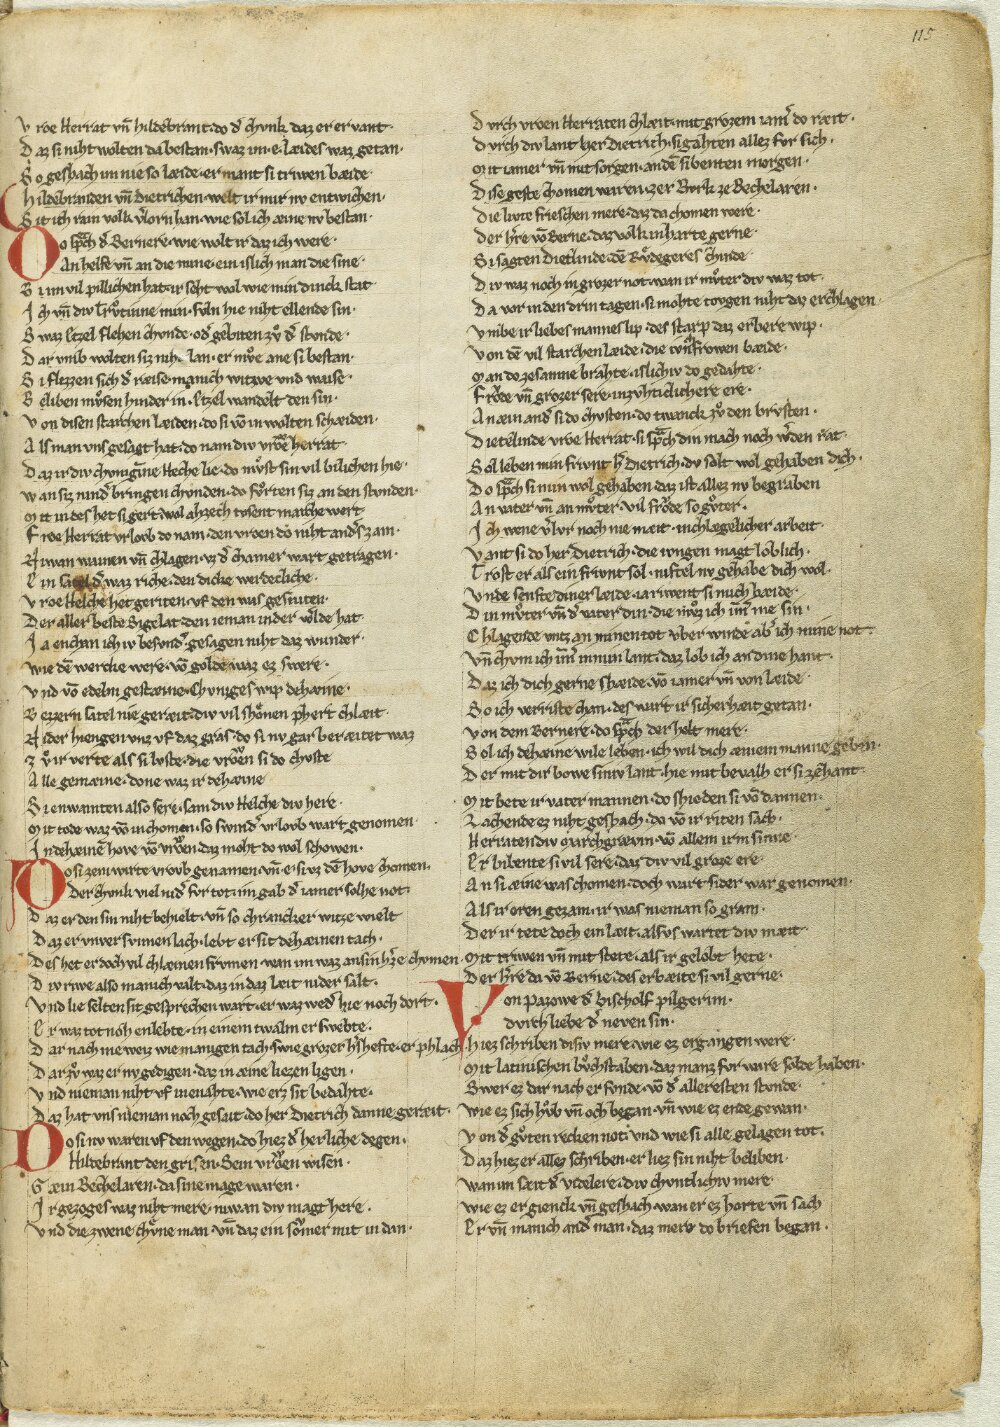 115
Vroe Herrat vn̄ hildebrant·do d᾽ chvnk daz er ervant·
Daz si niht wolten da bestan·swaz im·e·læides waz getan·
So gesħach im nie so læide·er mant si triwen bæide·
Hildebranden vn̄ Dietrichen·welt ir mir nv entwichen·
Sit ich min volk v᾽lorn han·wie sol ich æine nv bestan·
Do spͣch d᾽ Bernere·wie wolt ir daz ich were·
An helfe vn̄ an die mine·ein islich man die sine·
Bi im vil pillichen hat·ir seht wol wie min dinck stat
Ich vn̄ div trv̊tinne min·svln hie niht ellende sin·
Swaz Etzel flehen chvnde·od᾽ gebiten zv̊ d᾽ stvnde·
Dar vmb wolten siz niht lan·er mv̊e ane si bestan·
Si flizzen sich d᾽ ræise·manich witwe vnd waise·
Beliben mv̊sen hinder in·Etzel wandelt den sin·
Von disen starchen læiden·do si vō im wolten schæiden·
Als man vns gesagt hat·do nam div vrōe herrat
Daz ir div chvnigīne Heche lie·do mv̊st sin vil bilichen hie·
Wan siz nind᾽ bringen chvnden·do fv̊rten siz an den stvnden·
Mit in des het si gert·wol ahzech tvsent marche wert
Froe Herrat vrlovb do nam·den vrōen do niht and᾽s zam·
Niwan wainen vn̄ chlagen·vz d᾽ chamer wart getragen·
Ein satel d᾽ waz riche·den diche werdecliche·
Vroe Helche het geriten·vf den was gesniten·
Der aller beste Sigelat·den ieman in der w᾽lde hat
Ia enchan ich iv besvnd᾽·gesagen niht daz wunder·
Wie dē werche were·vō golde waz ez swere·
Vnd vō edelm gestæine·Chvniges wip dehæine·
Bezzern satel nie geræit·div vil shŏnen phert chlæit·
Nider hiengen vnz vf daz gras·do si nv gar beræitet waz
Zv̊ ir verte als si lvste·die vrōen si do chvste
Alle gemæine·done waz ir dehæine
Sienwainten also sere·sam div Helche div here·
Mit tode waz vō in chomen·so swind᾽ vrlovb wart genomen·
In dehæinē hove vō vrōen·daz moht do wol schowen·
Do si zem wirte vrlovb genamen·vn̄·e·si vz dē hove chomen·
Der chvnk viel nid᾽ for tot·im gab d᾽ iamer solhe not·
Daz er den sin niht behielt·vn̄ so chrancker witze wielt
Daz er vnversvnnen lach·lebt er sit dehæinen tach·
Des het er doch vil chlæinen frvmen·wan im waz an sin h᾽ze chomen·
Div riwe also manich valt·daz in daz læit nider salt·
Vnd lie selten sit gesprechen wart·er waz wed᾽ hie noch dort·
Er waz tot noh enlebte·in einem twalm er swebte·
Dar nach ine weiz wie manigen tach·swie grozer h᾽shefte·er phlach·
Dar zv̊ waz er nv gedigen·daz in æine liezen ligen·
Vnd nieman niht vf in enahte·wie erz sit bedahte·
Daz hat vns nieman noch gesait·do her Dietrich danne geræit·
Do si nv waren vf den wegen·do hiez d᾽ herliche degen·
Hildebrant den grisen·Sein vrōen wisen·
Gæin Bechelaren·da sine mage waren·
Ir gezoges waz niht mere·niwan div magt here·
Vnd die zwene chŭne man·vn̄ daz ein sŏmer mit in dan·
Dvrch vroen Herraten chlæit·mit grozem iam᾽ do ræit·
Dvrch div lant her dietrich·si gahten allez for sich·
Mit iamer vn̄ mit sorgen·an dē sibenten morgen·
Dise geste chomen waren·zer Bvrk ze Bechelaren·
Die livte frieschen mere·daz da chomen were·
Der h᾽re vō Berne·daz volk in harte gerne·
Si sagten Dietlinde·dē Rv̊degeres chinde·
Div waz noch in grozer not·wan ir mv̊ter div waz tot·
Da vor in den drin tagen·si mohte tovgen niht daz erchlagen·
Vmbe ir liebes mannes lip·des starp daz erbere wip·
Von dē vil starchen læide·die ivncfrowen bæide·
Man do zesamne brahte·islichiv do gedahte·
Frŏde vn̄ grozer sere·inzvhticlicher ere·
An æin and᾽ si do chvsten·do twanck zv̊ den brvsten·
Dietelinde vroe Herrat·si spͣch din mach noch w᾽den rat·
Sol leben min frivnt h᾽ Dietrich·dv solt wol gehaben dich·
Do spͣch si nv min wol gehaben·daz ist allez nv begraben
An vater vn̄ an mv̊ter·vil frŏde so gv̊ter·
Ich wene v᾽lvr noch nie mæit·in chlægelicher arbeit·
Vant si do her Dietrich·die ivngen magt loblich·
Trost er als ein frivnt sol·niftel nv gehabe dich wol·
Vnde senfte diner læide·ia riwent si mich bæide·
Din mv̊ter vn̄ d᾽ vater din·die mv̊z ich im̄᾽ me sin·
Chlagende vntz an minen tot·vber winde ab᾽ ich mine not·
Vn̄ chvm ich im̄᾽ in min lant·daz lob ich an dine hant·
Daz ich dich gerne shæide·vō iamer vn̄ von læide·
So ich verriste chan·des wirt ir sicherhæit getan·
Von dem Bernere·do spͣch der helt mere·
Sol ich dehæine wile leben·ich wil dich æinem manne gebin·
Der mit dir bowe siniv lant·hie mit bevalh er si zehant·
Mit bete ir vater mannen·do shieden si vō dannen·
Lachende ez niht gesħach·do vō ir riten sach·
Herraten div marchgrævin·vō allem irm sinne·
Er bibente si vil sere·daz div vil groze ere·
An si æine was chomen·doch wart sider war genomen·
Als ir oren gezam·ir was nieman so gram·
Der ir tete doch ein læit·alsvs wartet div mæit·
Mit triwen vn̄ mit stete·als ir gelobt hete·
Der h᾽re da vō Berne·des erbæite si vil gerne·
Von Pazowe d᾽ bischolf pilgerim·
dvrch liebe d᾽ neven sin·
Hiez schriben disiv mere·wie ez ergangen were·
Mit latinischen bv̊chstaben·daz manz for ware solde haben·
Swer ez dar nach er fvnde·vō d᾽ alleresten stvnde·
Wie ez sich hv̊b vn̄ och began·vn̄ wie ez ende gewan·
Von d᾽ gv̊ten recken not·vnd wie si alle gelagen tot·
Daz hiez er allez schriben·er liez sin niht beliben·
Wan im sæit d᾽ videlere·div chvntlichiv mere·
Wie ez er gienck vn̄ gesħach·wan er ez horte vn̄ sach
Er vn̄ manich and᾽ man·daz mere do briefen began·